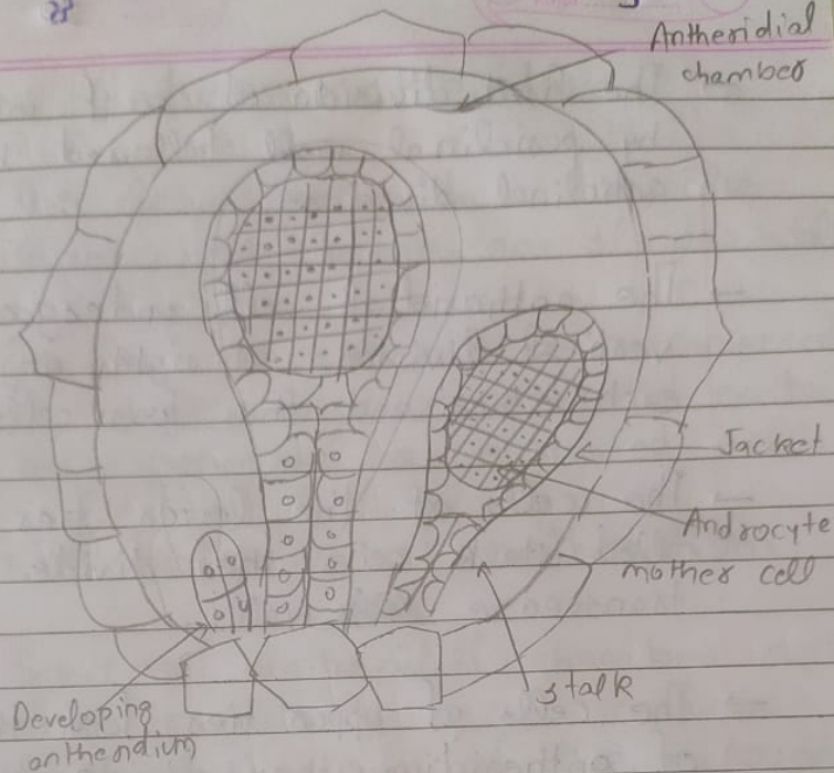 Antheridial
chamber
Jacket
Androcyte
mother cell
stalk
Developing
antheridium